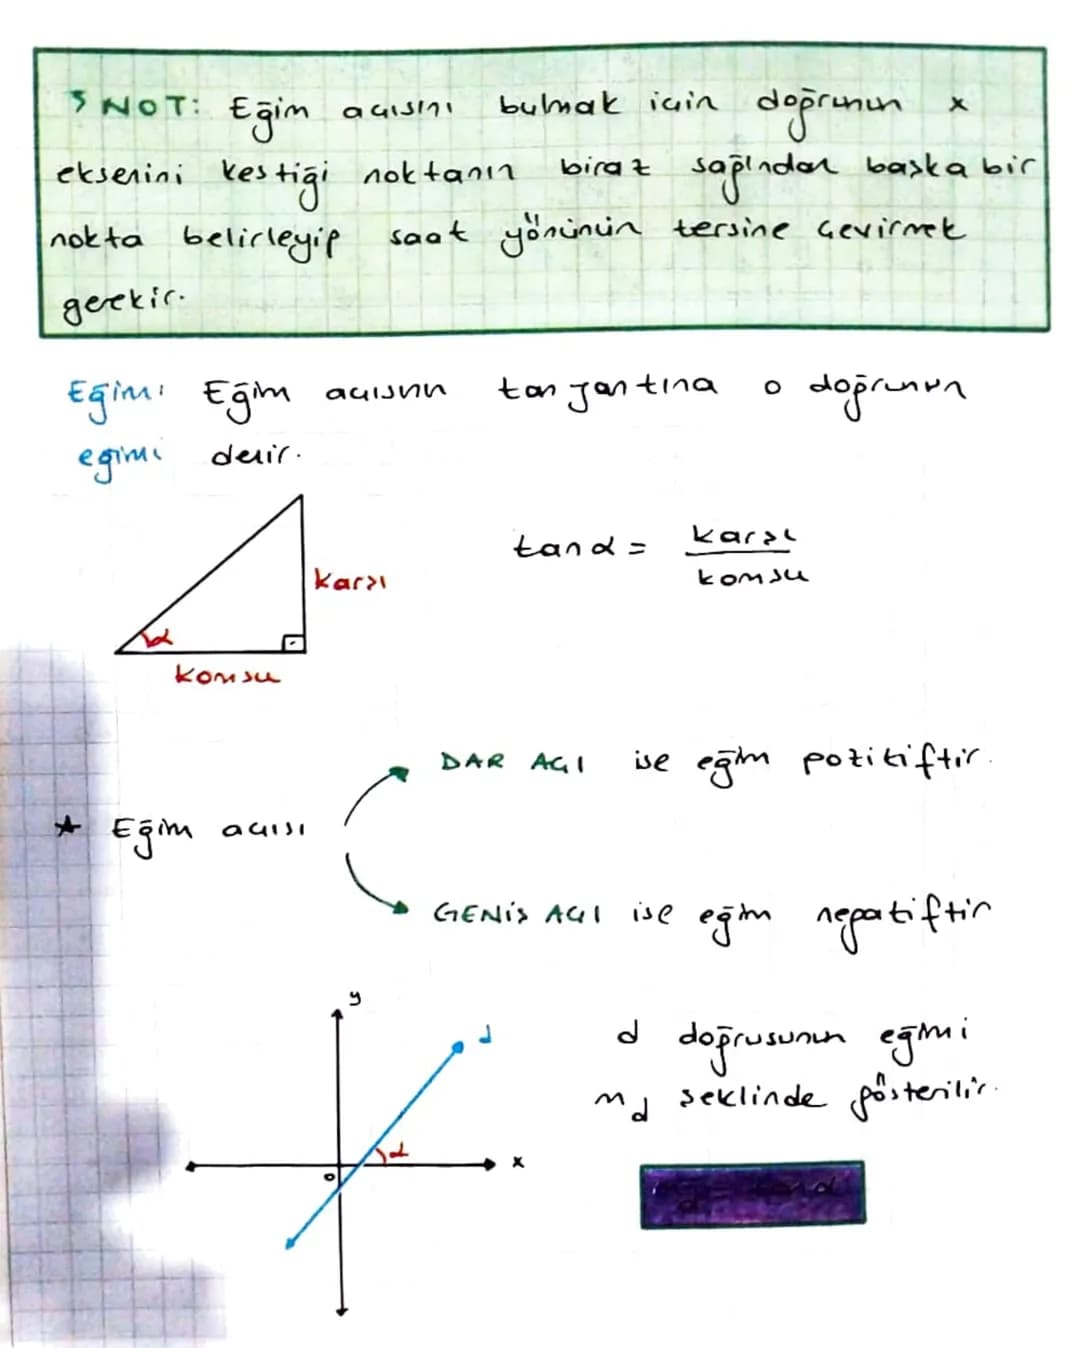 NOT: Eğim açısını bulmak için doğrunun x
eksenini kestiği noktanın biraz sağından başka bir
nokta belirleyip saat yönünün tersine çevirmek
gerekir.
Eğim: Eğim açısının tanjantına o doğrunun
eğimi denir.
tan α = karşı / komşu
karşı
α
komşu
DAR AÇI ise eğim pozitiftir.
★ Eğim açısı
GENİŞ AÇI ise eğim negatiftir
y
d
α
x
0
d doğrusunun eğimi
m_d şeklinde gösterilir.